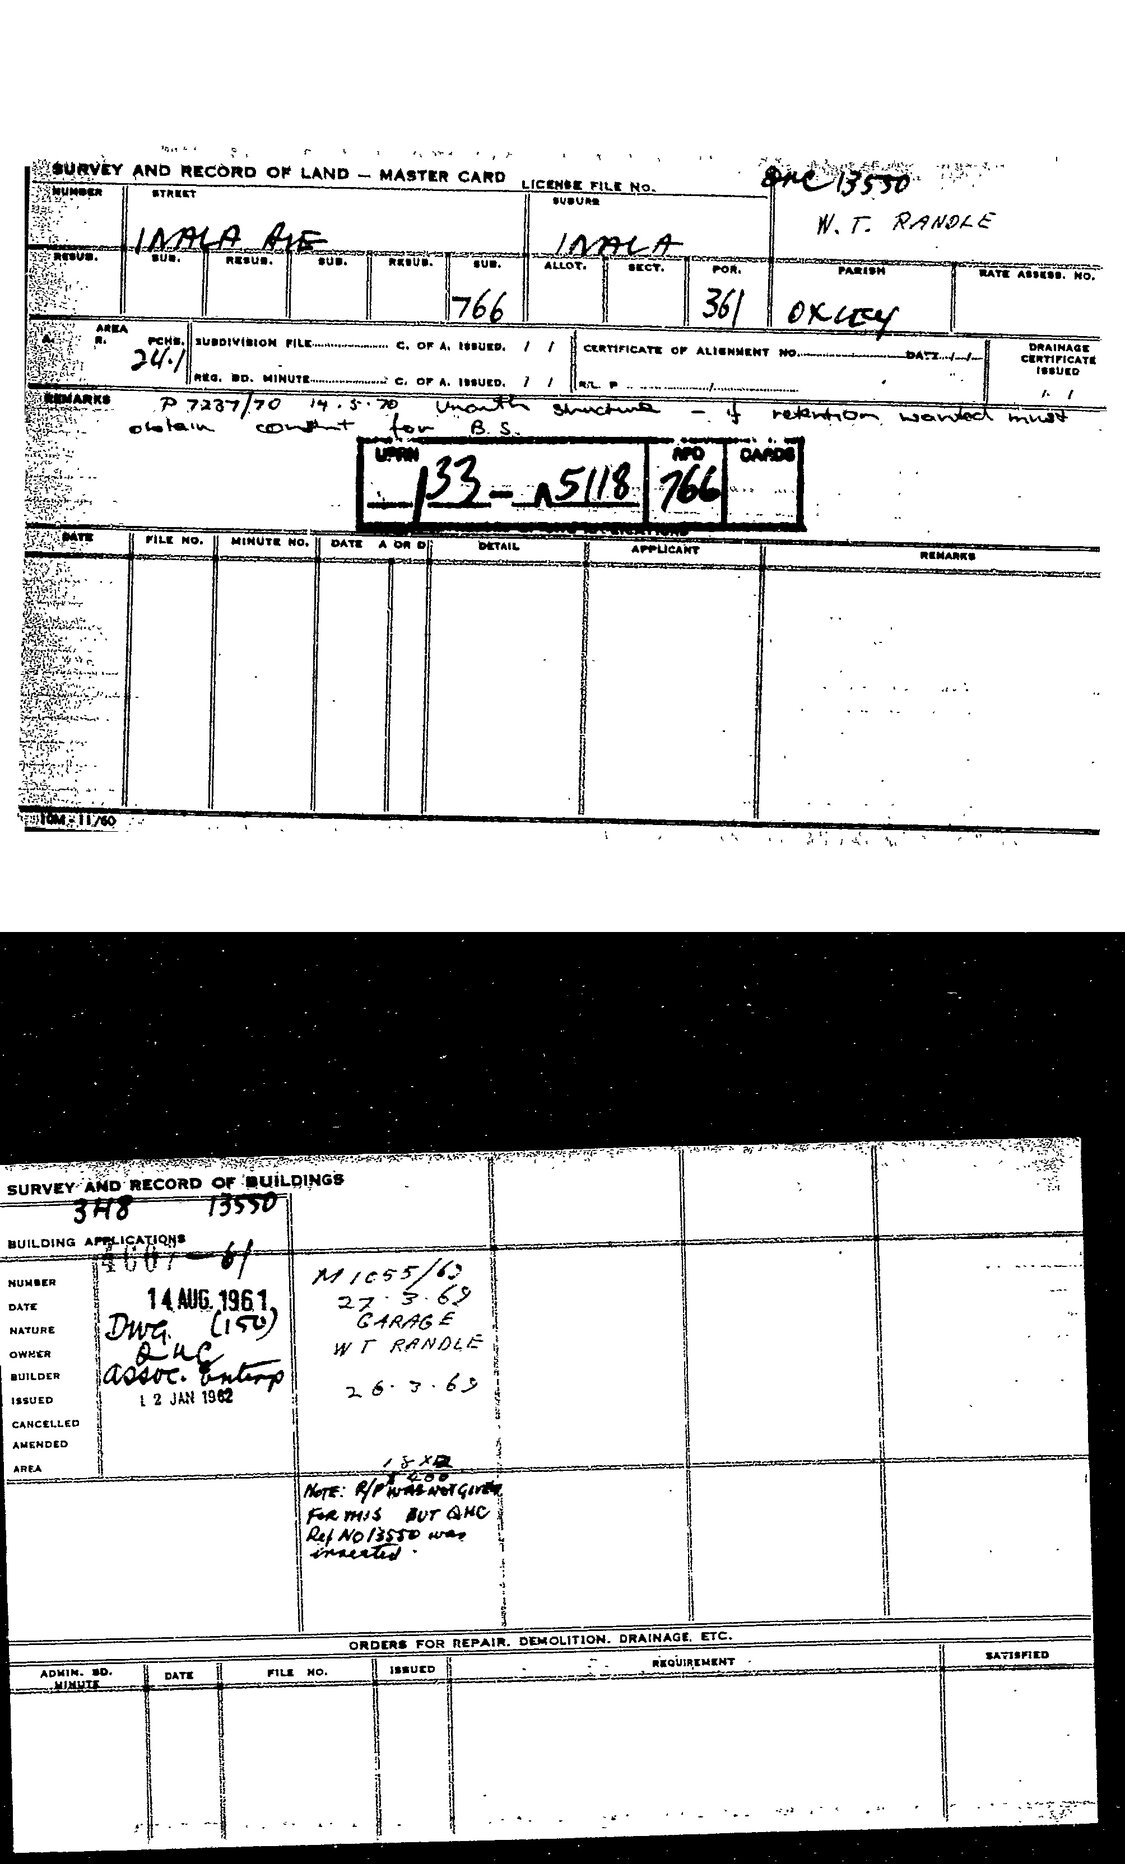 SURVEY AND RECORD OF LAND — MASTER CARD
LICENSE FILE No.
QHC 13550
NUMBER STREET SUBURB
W. T. RANDLE
INALA AVE INALA
RESUB. SUB. RESUB. SUB. RESUB. SUB. ALLOT. SECT. POR. PARISH RATE ASSESS. NO.
766 361 OXLEY
A. AREA R. PCHS. SUBDIVISION FILE C. OF A. ISSUED. / / CERTIFICATE OF ALIGNMENT NO. DATE / / DRAINAGE CERTIFICATE ISSUED
24.1
REG. BD. MINUTE C. OF A. ISSUED. / / R/L. P / / /
REMARKS P 7237/70 14.5.70 Unauth structure – if retention wanted must
obtain consent for B.S.
UPRN RPD CARDS
133 – 5118 766
DATE FILE NO. MINUTE NO. DATE A OR D DETAIL APPLICANT REMARKS
10M – 11/60
SURVEY AND RECORD OF BUILDINGS
3H8 13550
BUILDING APPLICATIONS
4667 — 61 M1055/69
NUMBER
DATE 14 AUG. 1961 27.3.69
NATURE Dwg. (150) GARAGE
OWNER QHC W T RANDLE
BUILDER Assoc. Enterp
ISSUED 12 JAN 1962 26.3.69
CANCELLED
AMENDED
AREA
$ 400
NOTE: R/P WAS NOT GIVEN
FOR THIS BUT QHC
Ref NO 13550 was
inserted.
ORDERS FOR REPAIR. DEMOLITION. DRAINAGE, ETC.
ADMIN. BD. MINUTE DATE FILE NO. ISSUED REQUIREMENT SATISFIED